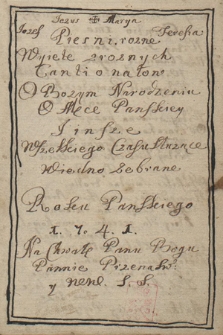 Jezus Marya
Jozef Teresia
Piesni rozne
Wyięte z roznych
Cantionałow
O Bozym Narodzeniu
O Męce Panskiey
Y insze
Wszelkiego Czasu słuzące
Wiedno Zebrane
Roku Panskiego
1. 7. 4. 1.
Na Chwałę Panu Bogu
Pannie Przenaśw:
y